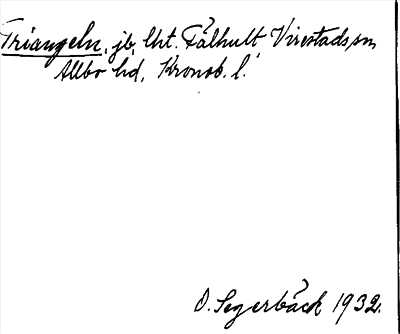 Triangeln, jb, lht. Fälhult, Virestads sn,
Allbo hd, Kronob. l.
O. Segerbäck 1932.